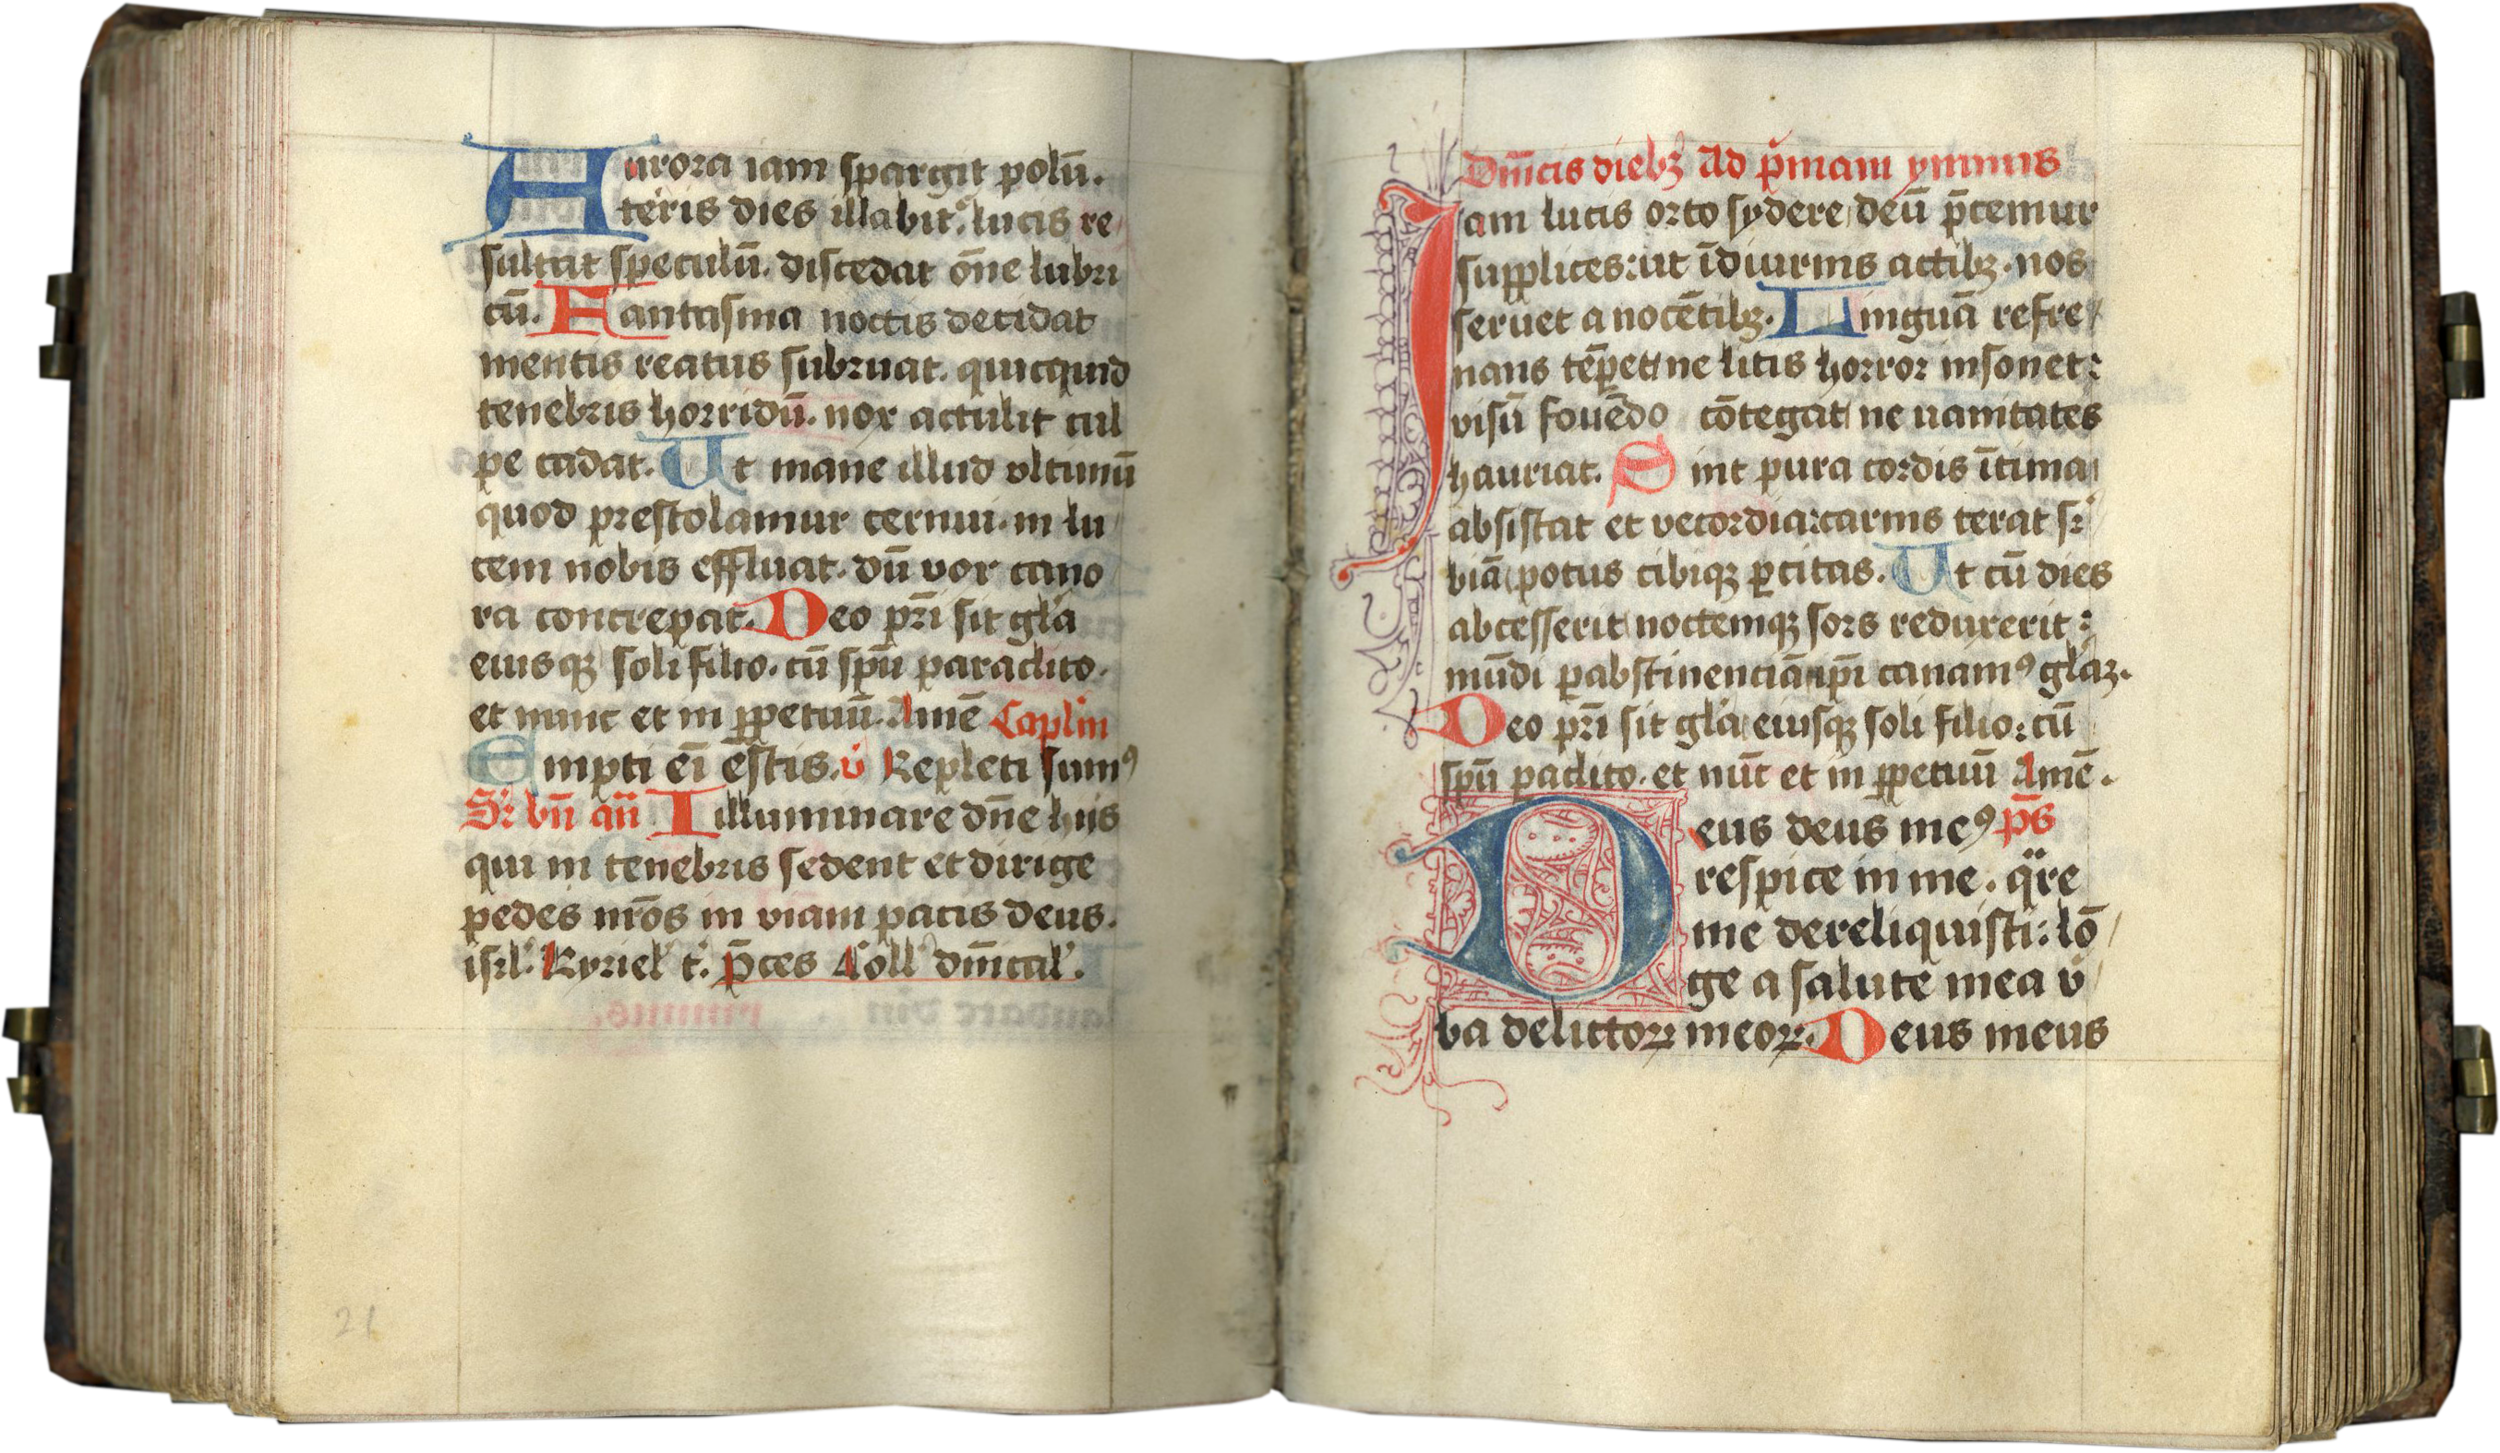 Aurora iam spargit polū.
teris dies illabit᷑. lucis re
sultat speculū. discedat ōne lubri
cū. Fantasma noctis decidat
mentis reatus subruat. quicquid
tenebris horridū. nox attulit cul
pe cadat. Ut mane illud vltimū
quod prestolamur cernui. in lu
cem nobis effluat. dū vox cano
ra concrepat. Deo pr̄i sit gl̄a
eiusqꝫ soli filio. cū spū paraclito.
et nunc et in ꝑpetuū. Amē Caplm
Empti eī estis. v̄ Repleti sumꝰ
Sr̄ bn̄ an̄ Illuminare dn̄e hijs
qui in tenebris sedent et dirige
pedes nr̄os in viam pacis deus.
isrl̄. Kyriel̄ t᷑. p̄ces Coll̄ dn̄ical̄.
21
Dn̄icis diebꝫ Ad p̄mam ymnus
Iam lucis orto sydere deū p̄cemur
supplices: ut ī diurnis actibꝫ. nos
seruet a nocētibꝫ. Linguā refre
nans tēꝑet ne litis horror insonet:
visū fouēdo cōtegat ne uanitates
hauriat. Sint pura cordis ītima
absistat et vecordia: carnis terat su᷑
biā potus cibiqꝫ ꝑcitas. Ut cū dies
abcesserit noctemqꝫ sors reduxerit:
mūdi ꝑ abstinenciā ip̄i canamꝰ gl̄aꝫ.
Deo pr̄i sit gl̄a eiusqꝫ soli filio: cū
spū paclito. et nūc et in ꝑpetuū Amē.
Deus deus meꝰ p̄s
respice in me. qr̄e
me dereliquisti: lō
ge a salute mea v̄
ba delictoꝝ meoꝝ. Deus meus